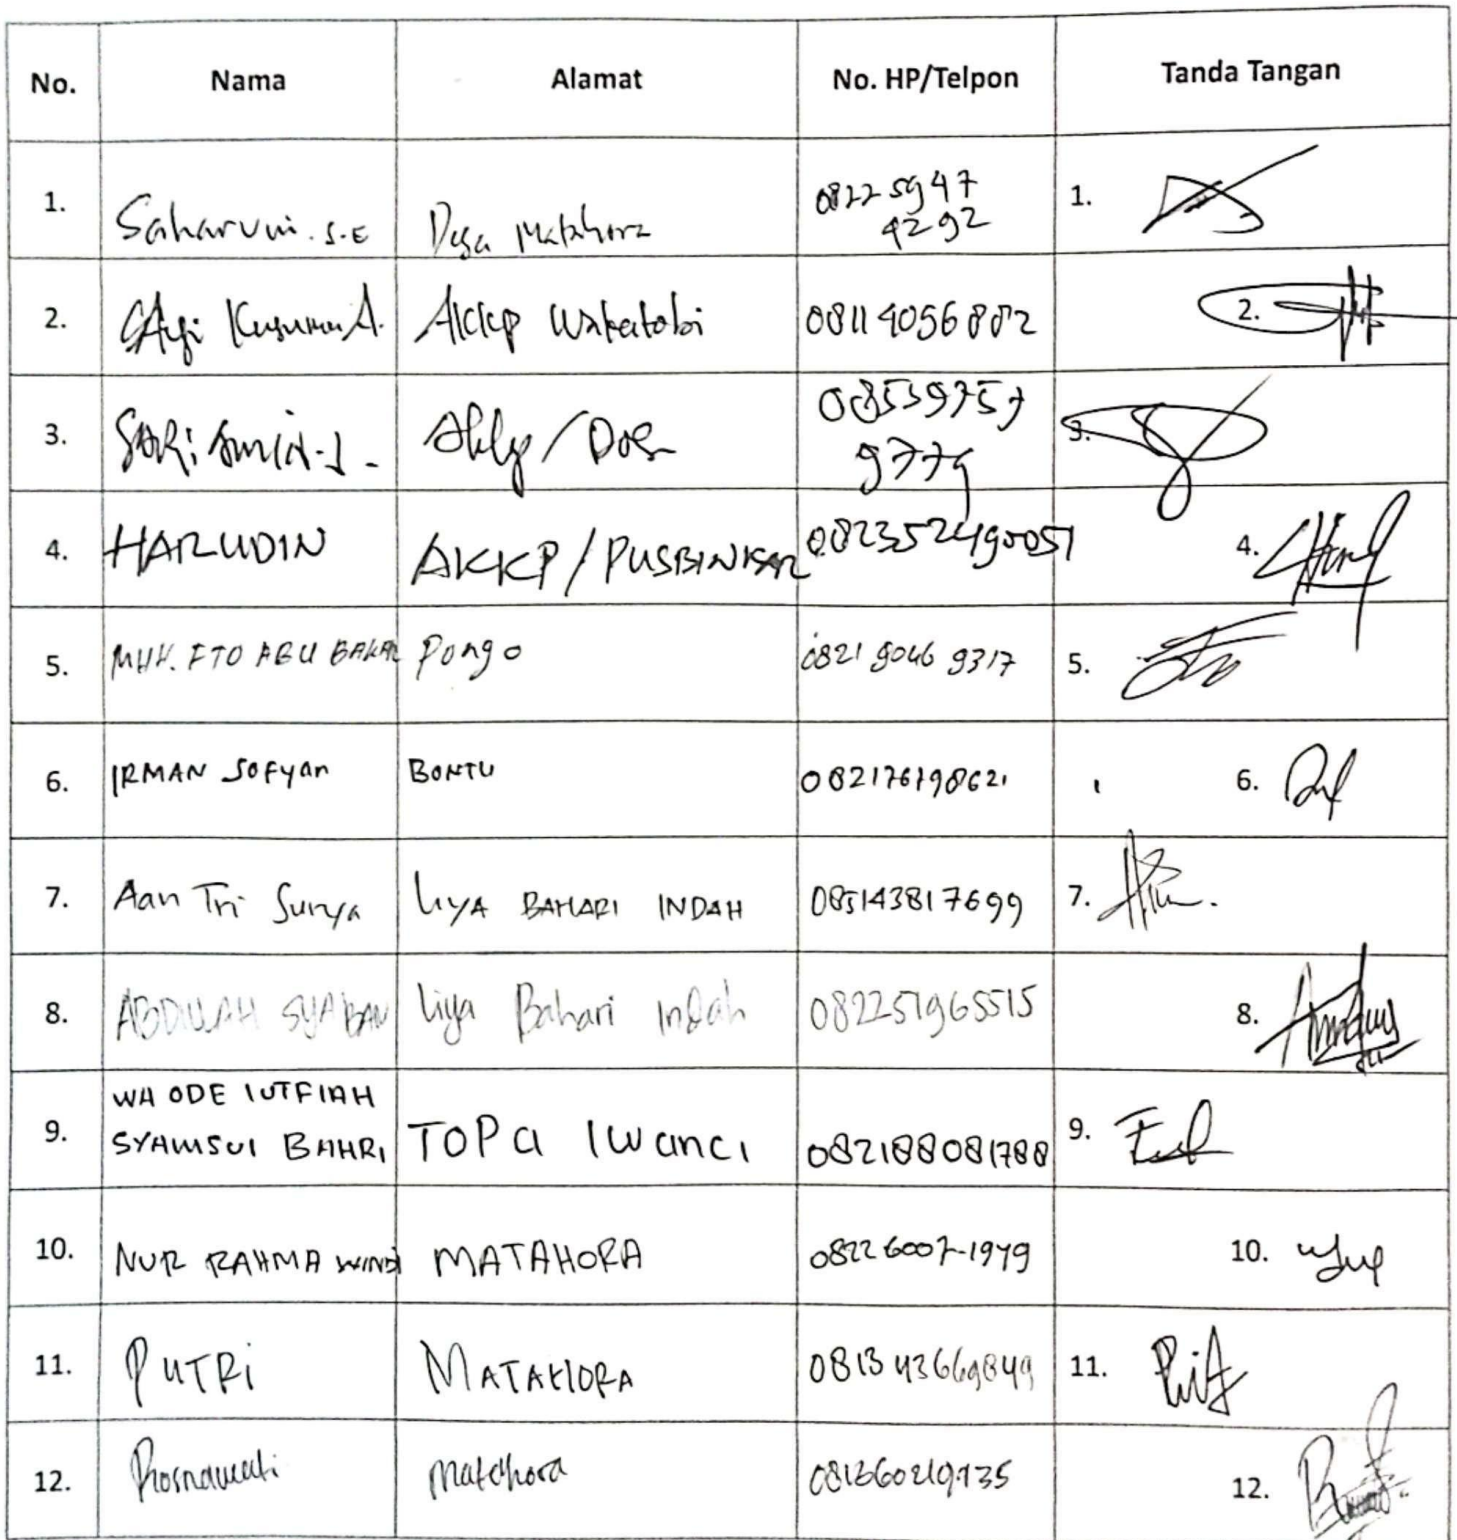 No. Nama Alamat No. HP/Telpon Tanda Tangan
1. Saharuni. S.E Desa Matahora 08225947 1.
4292
2. Kusuma A. AKKP Wakatobi 081140556882 2.
3. Sari 08539757 3.
9779
4. HARUDIN AKKP/PUSBINKAR 4.
5. MUH. FTO ABU BAKAR Pongo 0821 9046 9317 5.
6. IRMAN SOFYAN BONTU 6.
7. Aan Tri Surya LIYA BAHARI INDAH 085143817699 7.
8. ABDULLAH SYABAN Liya Bahari Indah 082251965515 8.
WA ODE LUTFIAH
9. SYAMSUL BAHRI TOPA IWANCI 082188081788 9.
10. NUR RAHMA WINDI MATAHORA 08226007-1979 10.
11. PUTRI MATAHORA 0813 43669849 11.
12. Rosnawati Matahora 12.